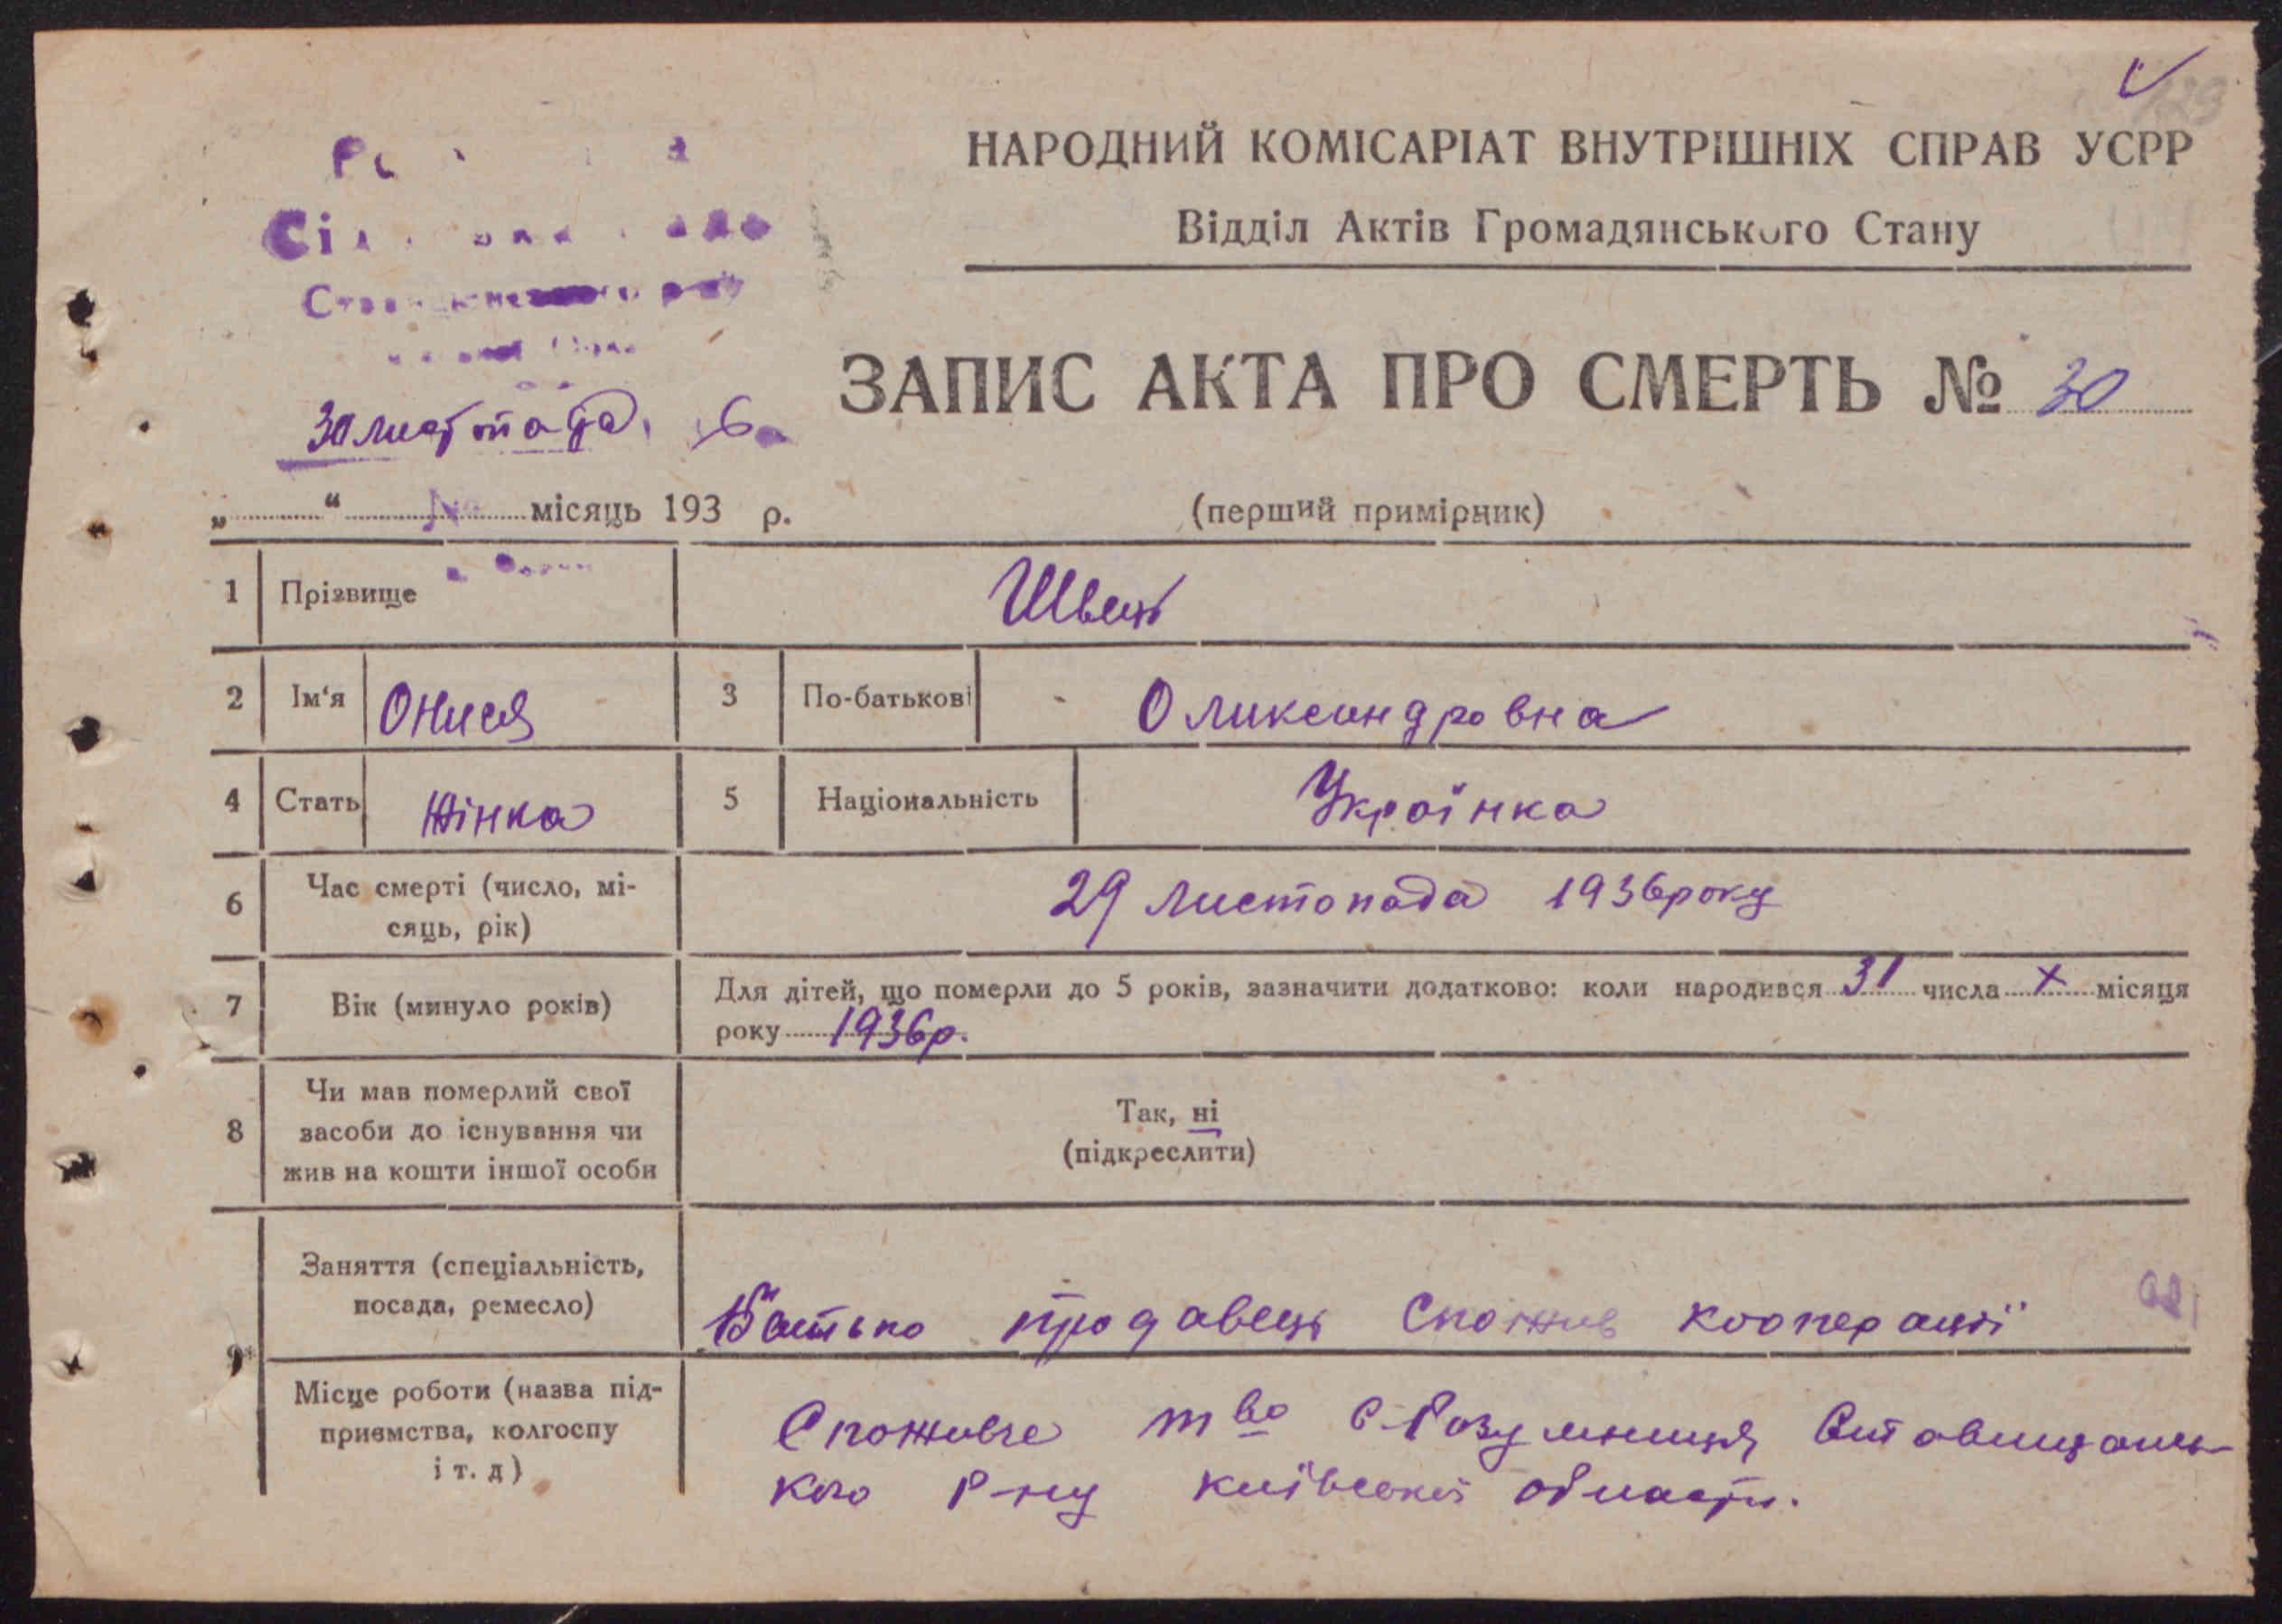 НАРОДНИЙ КОМІСАРІАТ ВНУТРІШНІХ СПРАВ УСРР
Відділ Актів Громадянського Стану
ЗАПИС АКТА ПРО СМЕРТЬ № 30
30 листопада 6
„ “ місяць 193 р.
(перший примірник)
1 Прізвище Швець
2 Ім'я Онися 3 По-батькові Оликсандровна
4 Стать Жінка 5 Національність Українка
6 Час смерті (число, мі-
сяць, рік)
29 листопада 1936 року
7 Вік (минуло років)
Для дітей, що померли до 5 років, зазначити додатково: коли народився 31 числа X місяця
року 1936 р.
8 Чи мав померлий свої
засоби до існування чи
жив на кошти іншої особи
Так, ні
(підкреслити)
9* Заняття (спеціальність,
посада, ремесло)
Батько продавець Спожив кооперації
Місце роботи (назва під-
приємства, колгоспу
і т. д)
Споживче тво с Розумниця Ставищансь-
кого р-ну київської області.